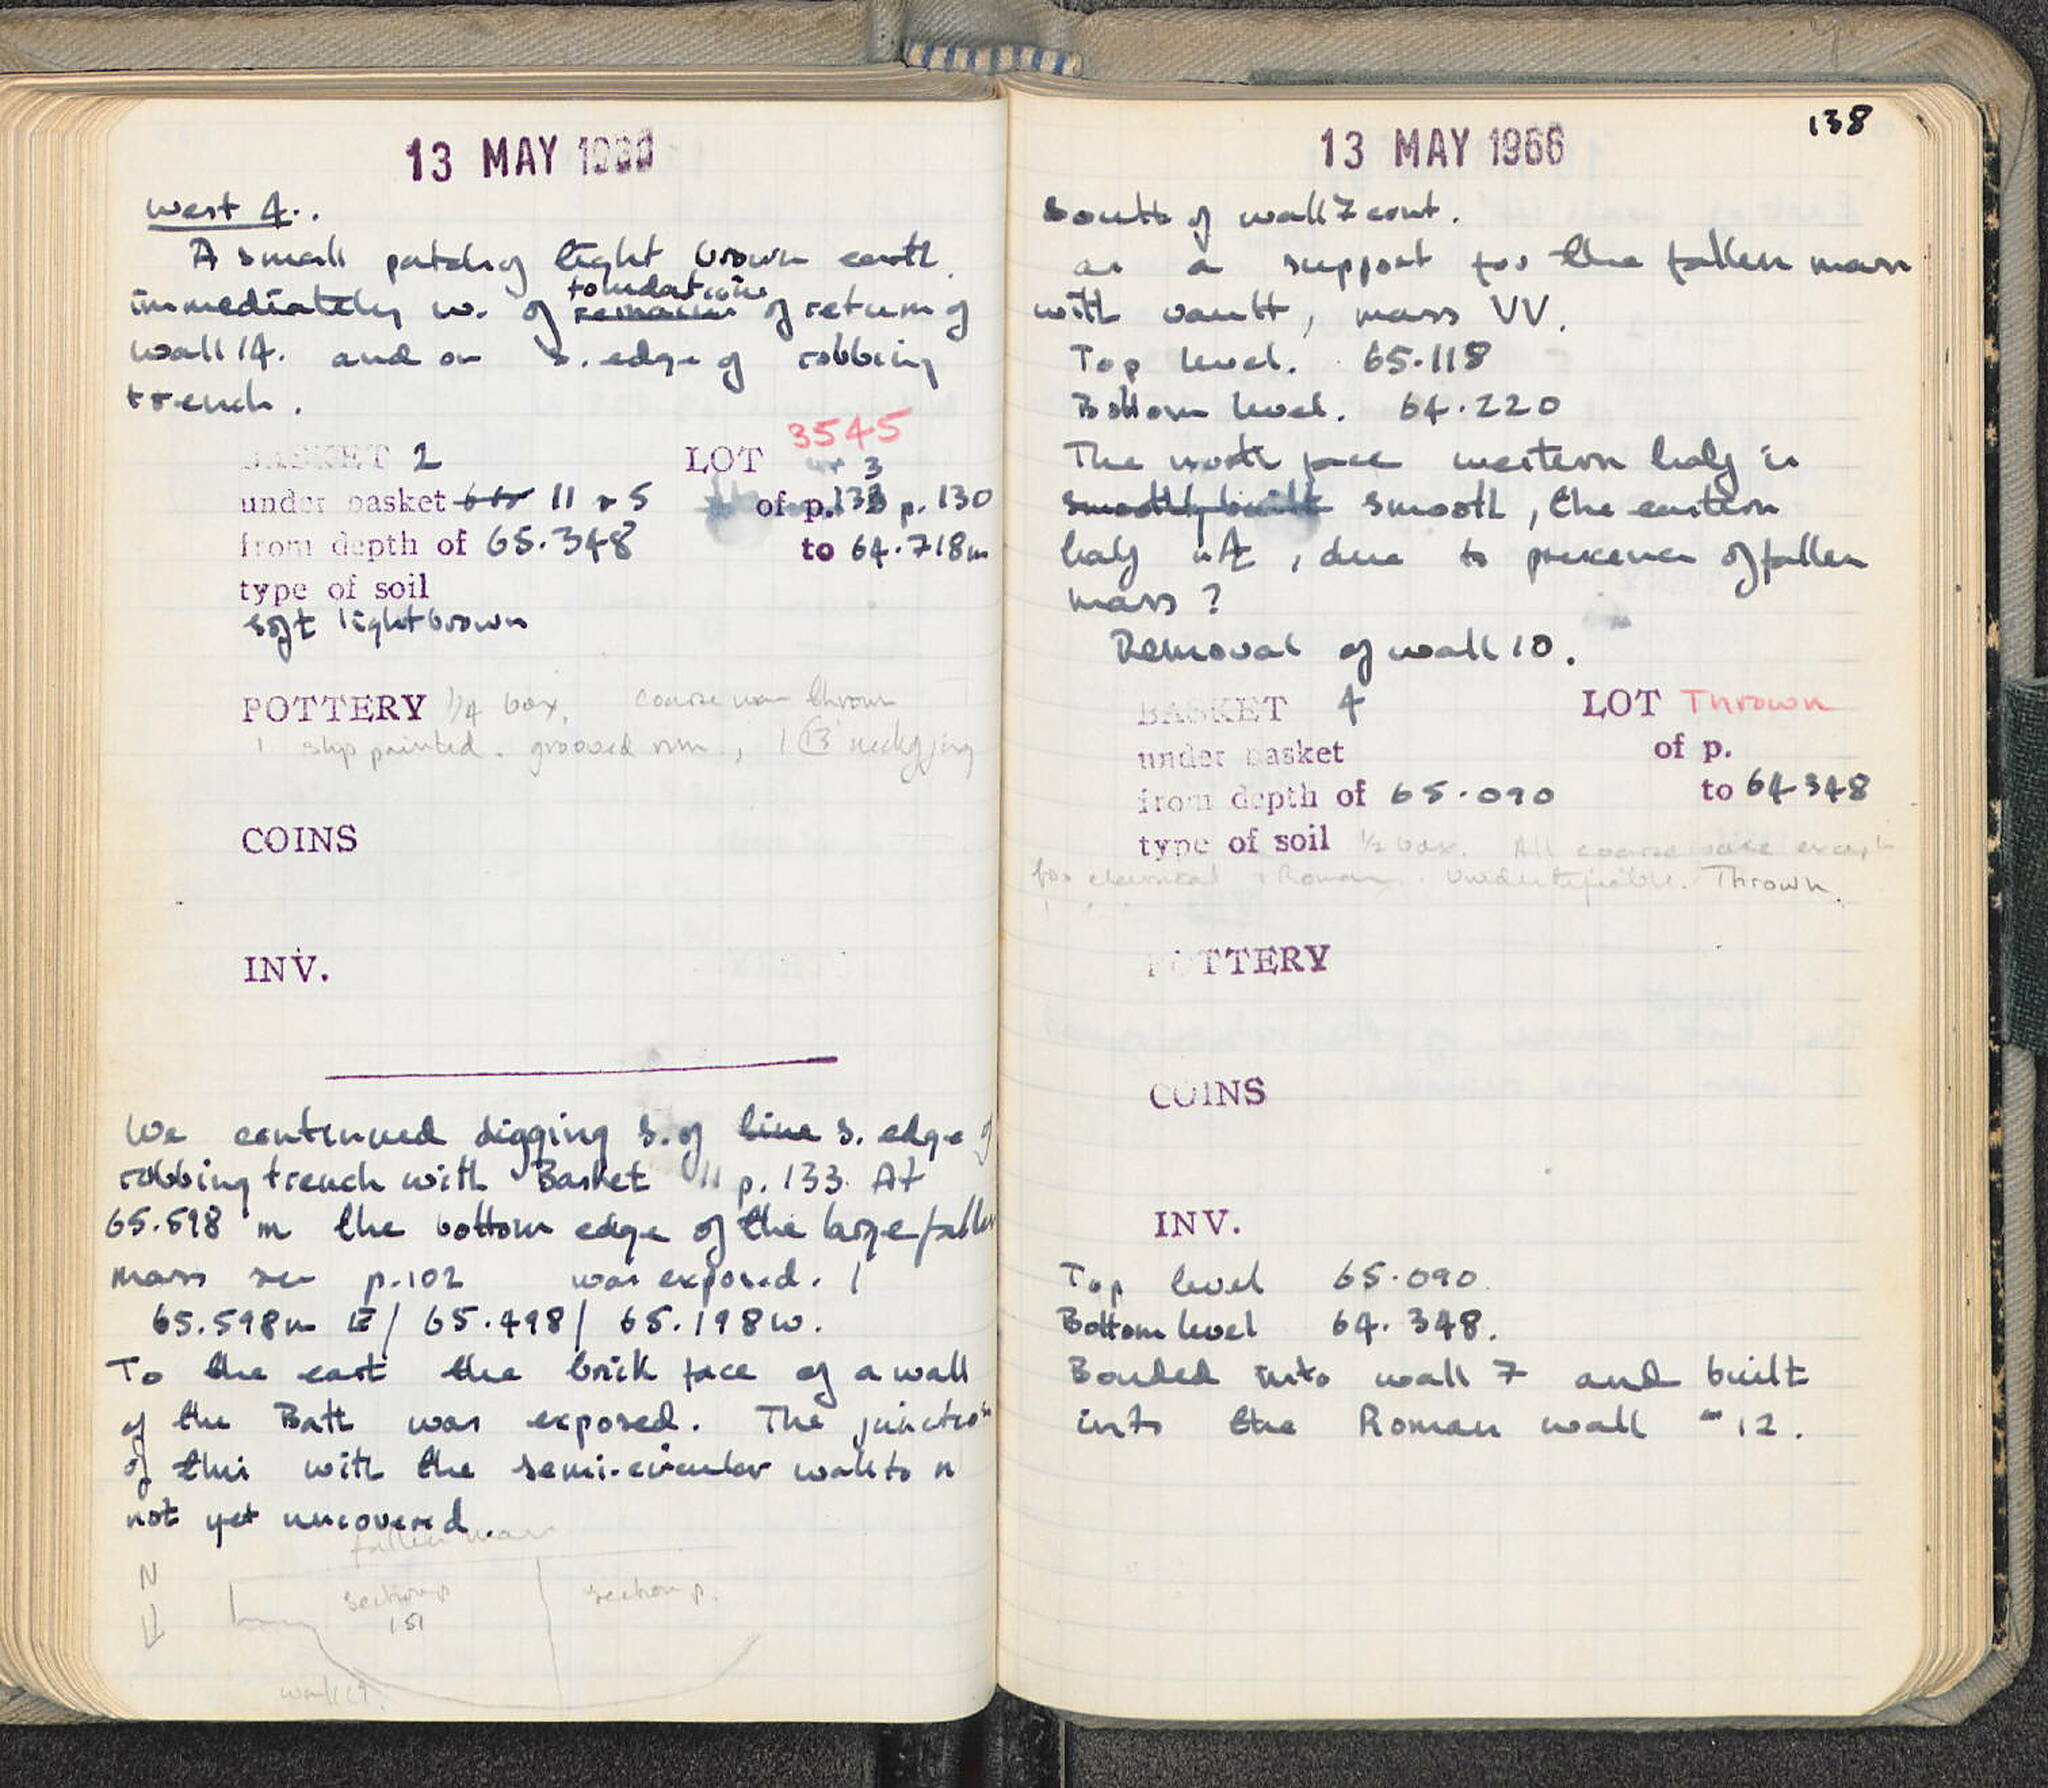 13 MAY 1966
West 4..
A small patch of light brown earth
foundations
immediately w. of remains of return of
wall 14. and on s. edge of robbing
trench.
3545
BASKET 2 LOT 3
under basket 11 + 5 of p. 133 p. 130
from depth of 65.348 to 64.718m
type of soil
soft light brown
POTTERY 1/4 box. coarse ware thrown
1 slip painted. grooved rim, 1 C13 neck of jug
COINS
INV.
We continued digging S. of line s. edge of
robbing trench with Basket 11 p. 133. At
65.598 m the bottom edge of the large fallen
mass see p.102 was exposed. /
65.598m E/ 65.498/ 65.198w.
To the east the brick face of a wall
of the Bath was exposed. The junction
of this with the semi-circular wall to n
not yet uncovered.
fallen mass
N
section p. section p.
151
wall 19.
138
13 MAY 1966
South of wall 7 cont.
as a support for the fallen mass
with vault, mass VV.
Top level. 65.118
Bottom level. 64.220
The north face western half is
smoothly built smooth, the eastern
half not, due to presence of fallen
mass?
Removal of wall 10.
BASKET 4 LOT Thrown
under basket of p.
from depth of 65.090 to 64.348
type of soil 1/2 box. All coarse ware except
for classical + Roman. Unidentifiable. Thrown.
POTTERY
COINS
INV.
Top level 65.090.
Bottom level 64.348.
Bonded into wall 7 and built
into the Roman wall 12.